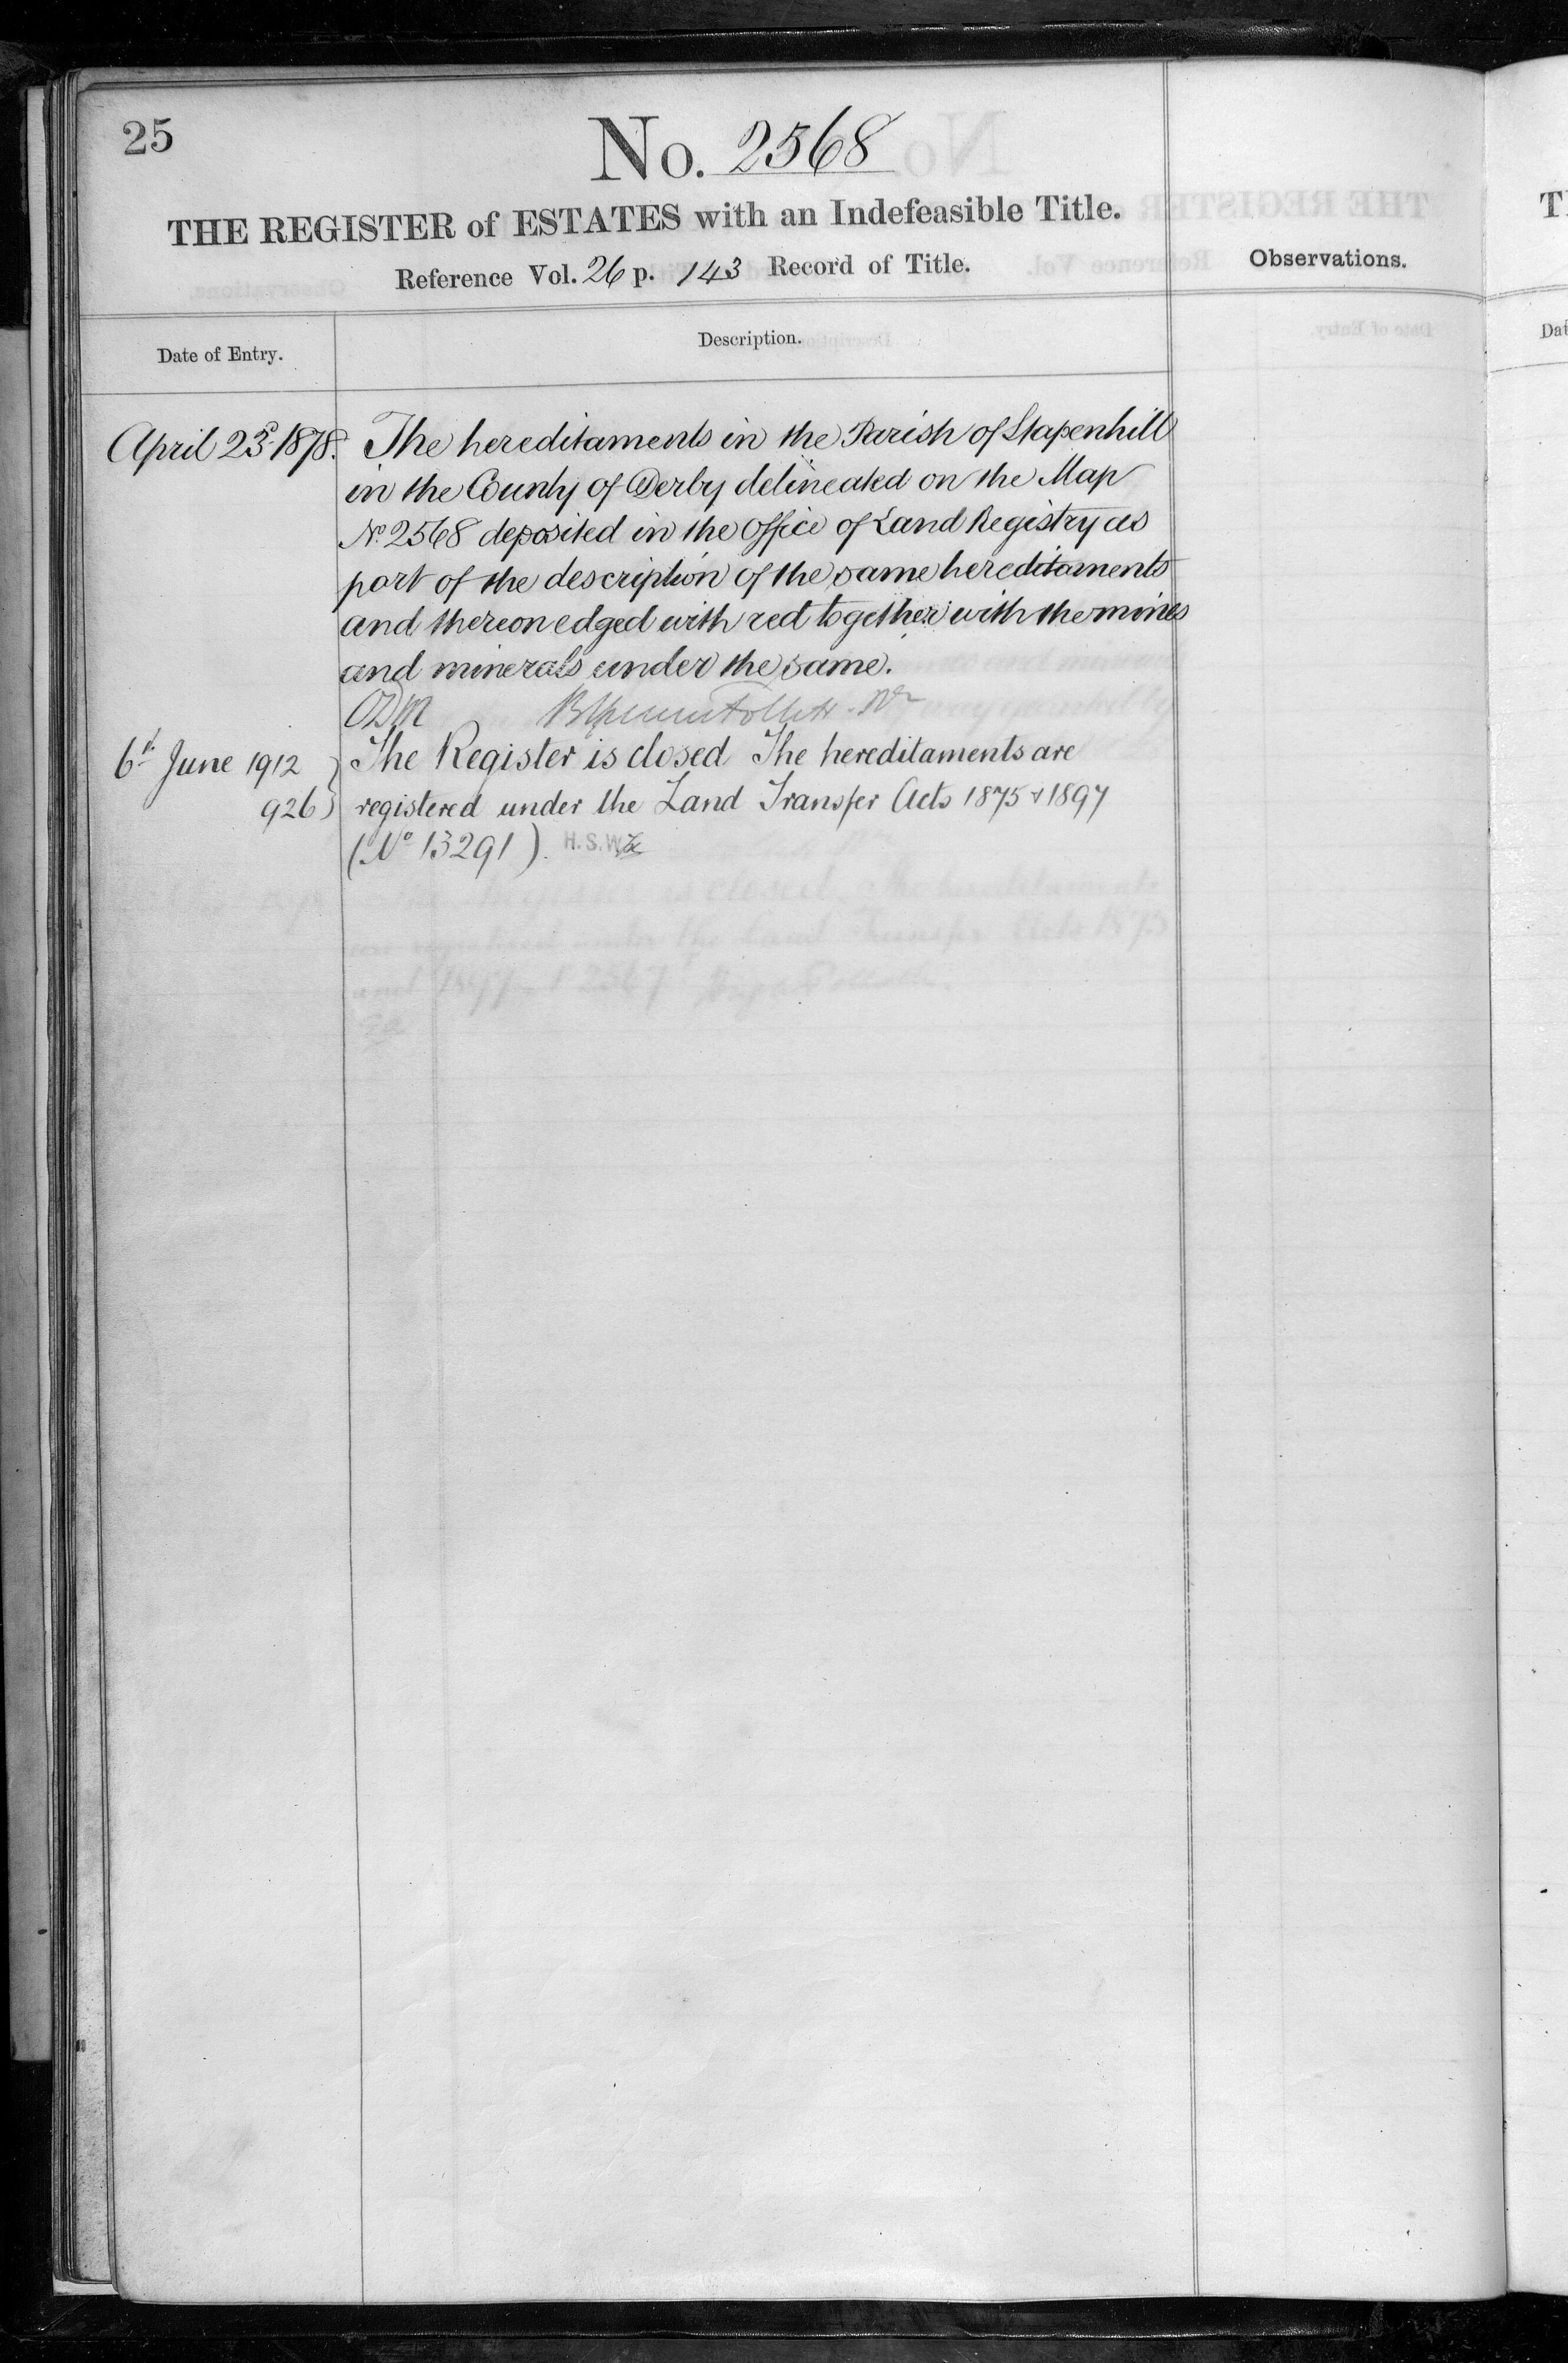 25
No. 2568
THE REGISTER of ESTATES with an Indefeasible Title.
Reference Vol. 26 p. 143 Record of Title.
Observations.
Date of Entry.
Description.
April 23d. 1878. The hereditaments in the Parish of Stapenhill
in the County of Derby delineated on the Map
No. 2568 deposited in the Office of Land Registry as
part of the description of the same hereditaments
and thereon edged with red together with the mines
and minerals under the same.
6th June 1912 } The Register is closed The hereditaments are
926 } registered under the Land Transfer Acts 1875 & 1897
(No 13291). H.S.W.